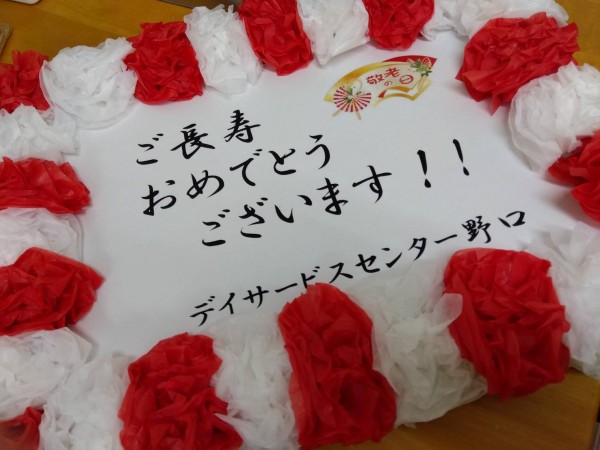 敬老
の日
ご長寿
おめでとう
ございます！！
デイサードスセンター野口